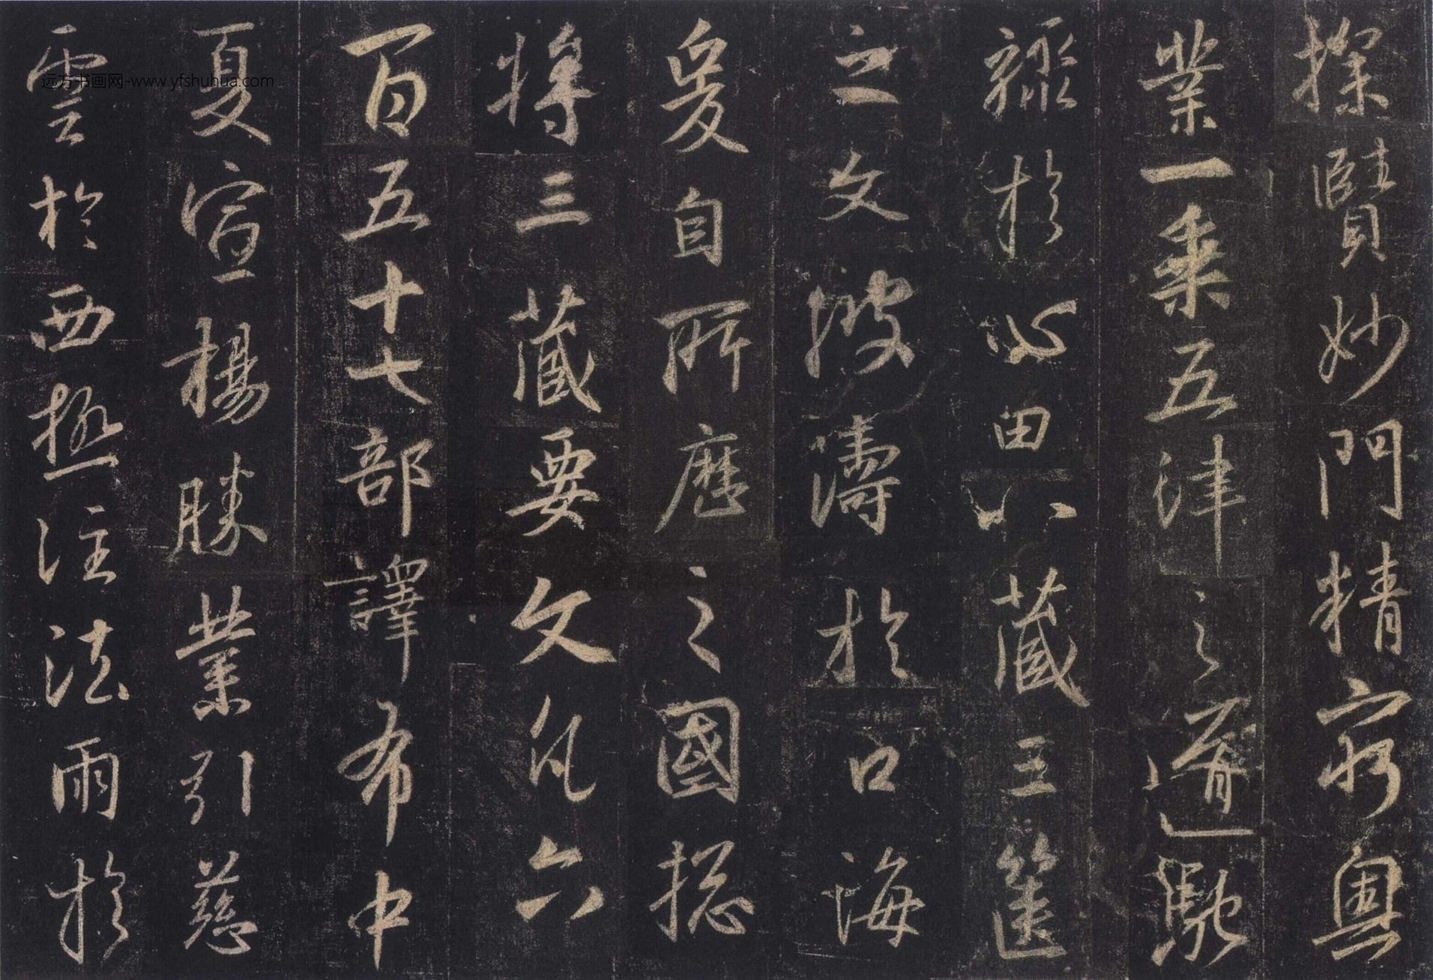 探賾妙門精窮奧
業一乘五律之道馳
驟於心田八藏三篋
之文波濤於口海
爰自所歷之國揔
將三藏要文凡六
百五十七部譯布中
夏宣揚勝業引慈
雲於西極注法雨於
远方书画网-www.yfshuhua.com